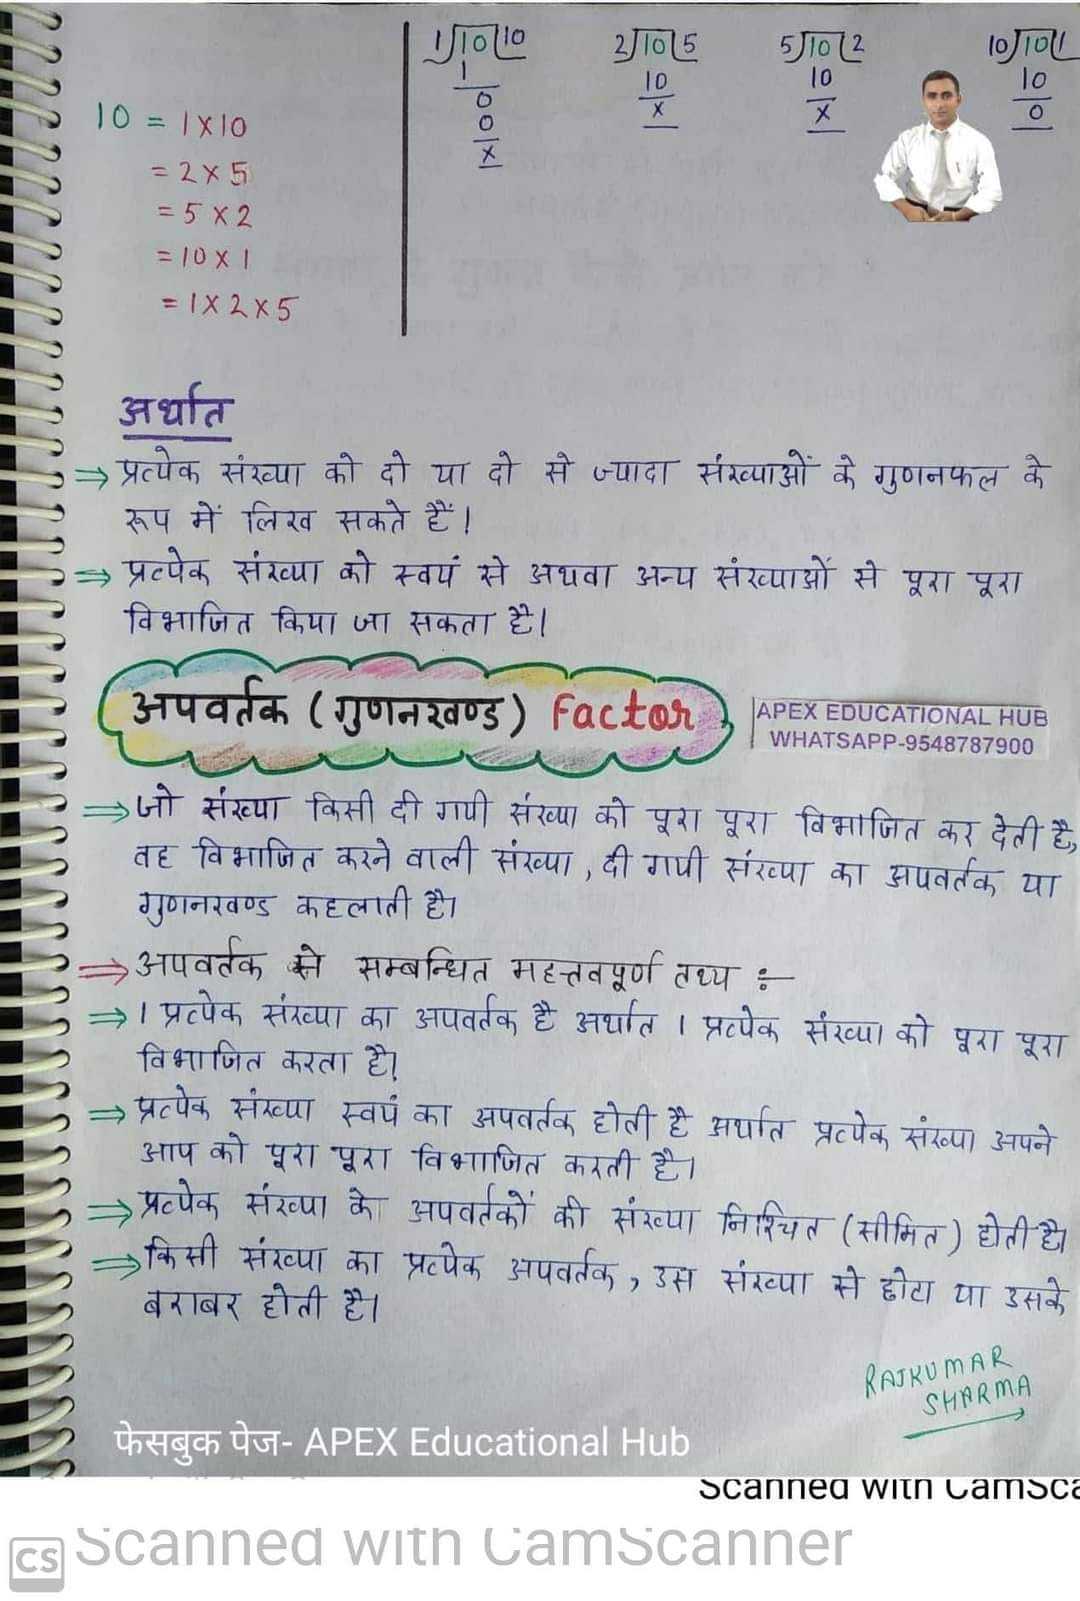 1)10(10
1
0
0
x
2)10(5
10
x
5)10(2
10
x
10)10(1
10
0
10 = 1×10
= 2×5
= 5×2
= 10×1
= 1×2×5
अर्थात
⇒ प्रत्येक संख्या को दो या दो से ज्यादा संख्याओं के गुणनफल के
रूप में लिख सकते हैं।
⇒ प्रत्येक संख्या को स्वयं से अथवा अन्य संख्याओं से पूरा पूरा
विभाजित किया जा सकता है।
अपवर्तक (गुणनखण्ड) Factor
APEX EDUCATIONAL HUB
WHATSAPP-9548787900
⇒ जो संख्या किसी दी गयी संख्या को पूरा पूरा विभाजित कर देती है,
वह विभाजित करने वाली संख्या, दी गयी संख्या का अपवर्तक या
गुणनखण्ड कहलाती है।
⇒ अपवर्तक से सम्बन्धित महत्तवपूर्ण तथ्य :-
⇒ 1 प्रत्येक संख्या का अपवर्तक है अर्थात 1 प्रत्येक संख्या को पूरा पूरा
विभाजित करता है।
⇒ प्रत्येक संख्या स्वयं का अपवर्तक होती है अर्थात प्रत्येक संख्या अपने
आप को पूरा पूरा विभाजित करती है।
⇒ प्रत्येक संख्या के अपवर्तकों की संख्या निश्चित (सीमित) होती है।
⇒ किसी संख्या का प्रत्येक अपवर्तक, उस संख्या से छोटा या उसके
बराबर होती है।
RAJKUMAR
SHARMA
फेसबुक पेज- APEX Educational Hub
Scanned with CamSca
CS Scanned with CamScanner